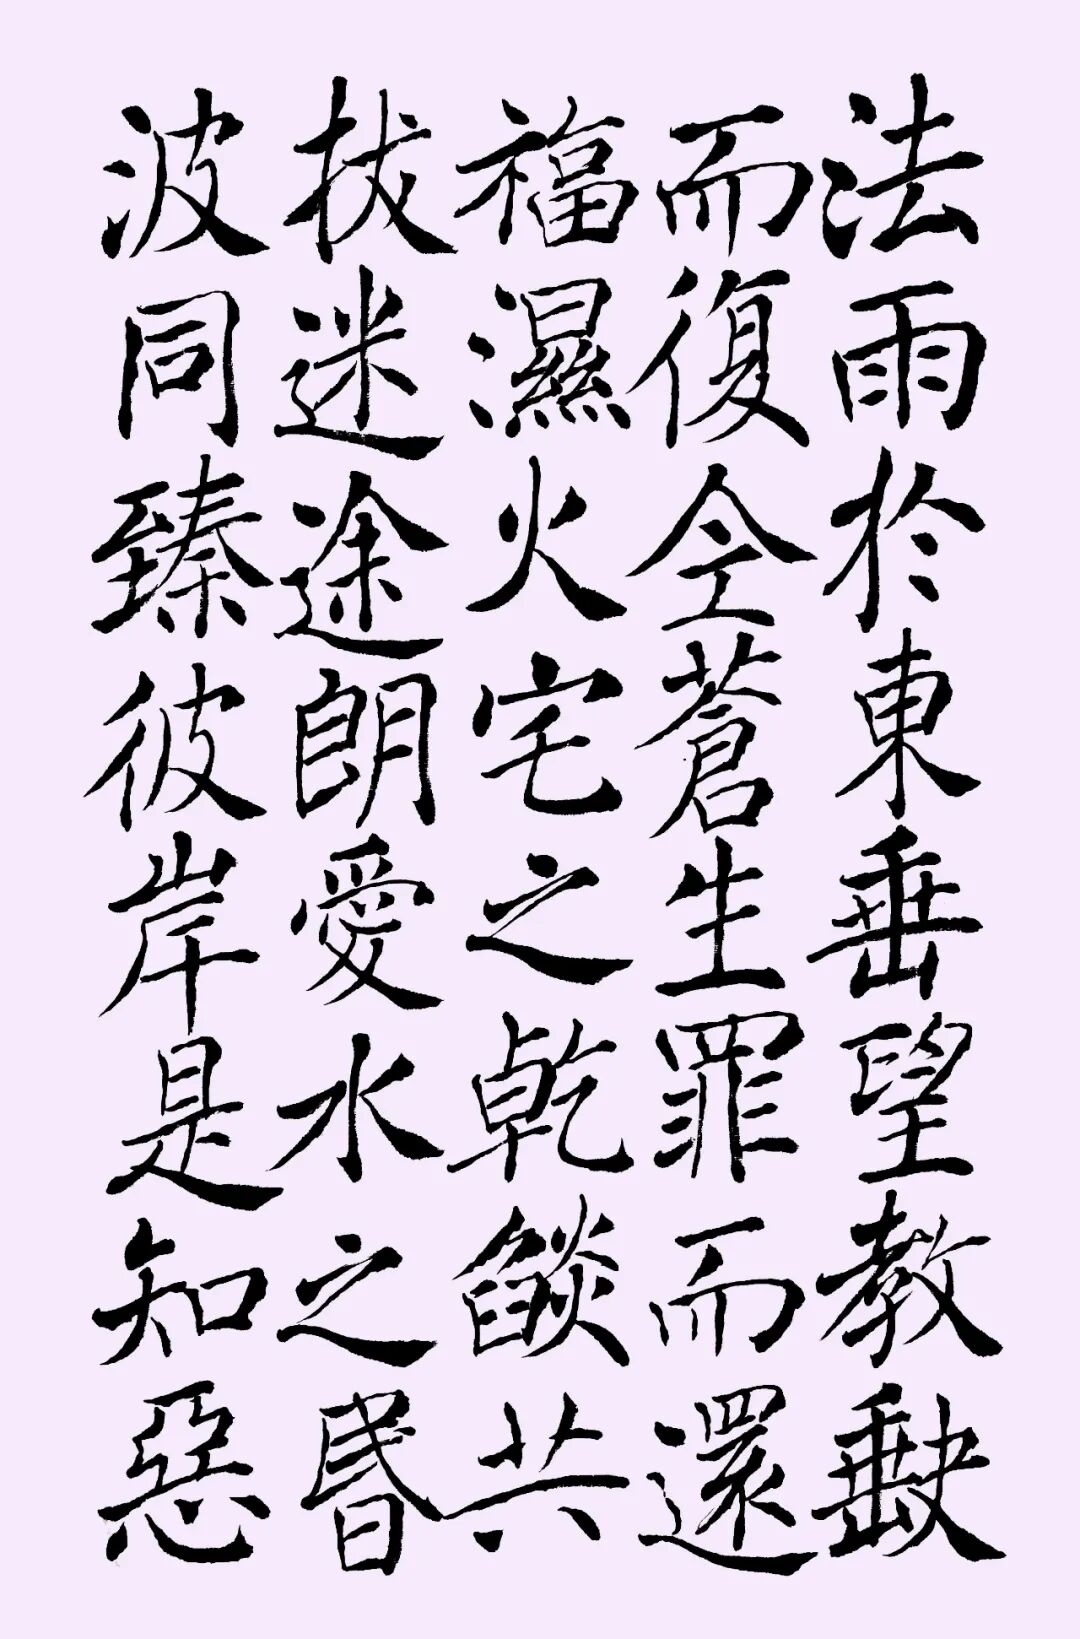 法雨於東垂聖教缺
而復全蒼生罪而還
福濕火宅之乾燄共
拔迷途朗愛水之昬
波同臻彼岸是知惡